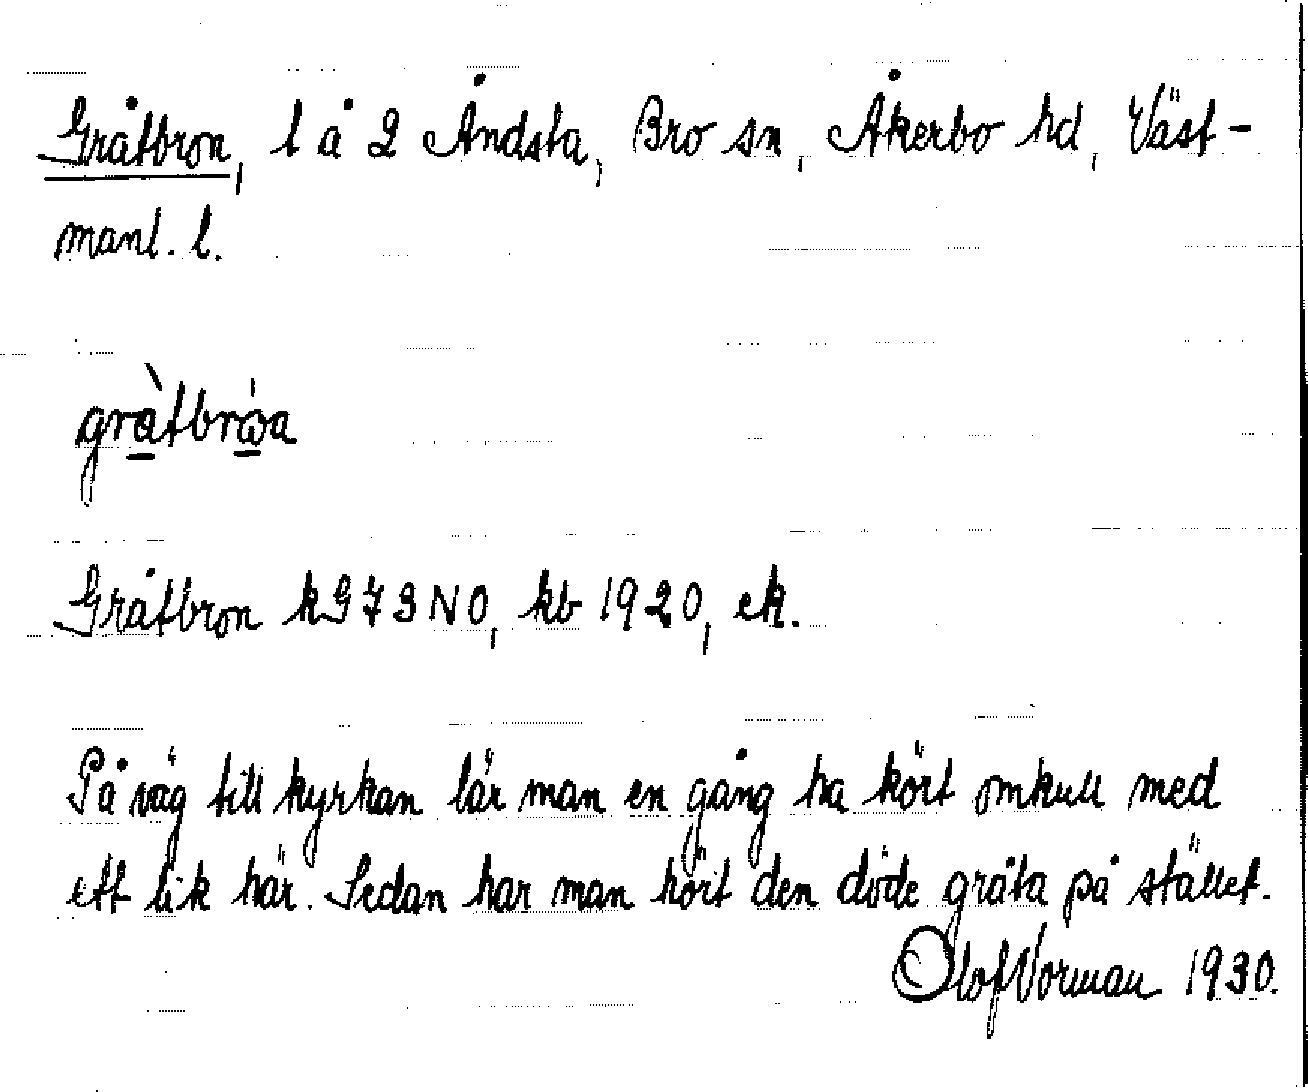 Gråtbron, l å 2 Åndsta, Bro sn, Åkerbo hd, Väst-
manl. l.
gràtbrω̇a
Gråtbron kG73NO, kb 1920, ek.
På väg till kyrkan lär man en gång ha kört omkull med
ett lik här. Sedan har man hört den döde gråta på stället.
Olof Vorman 1930.